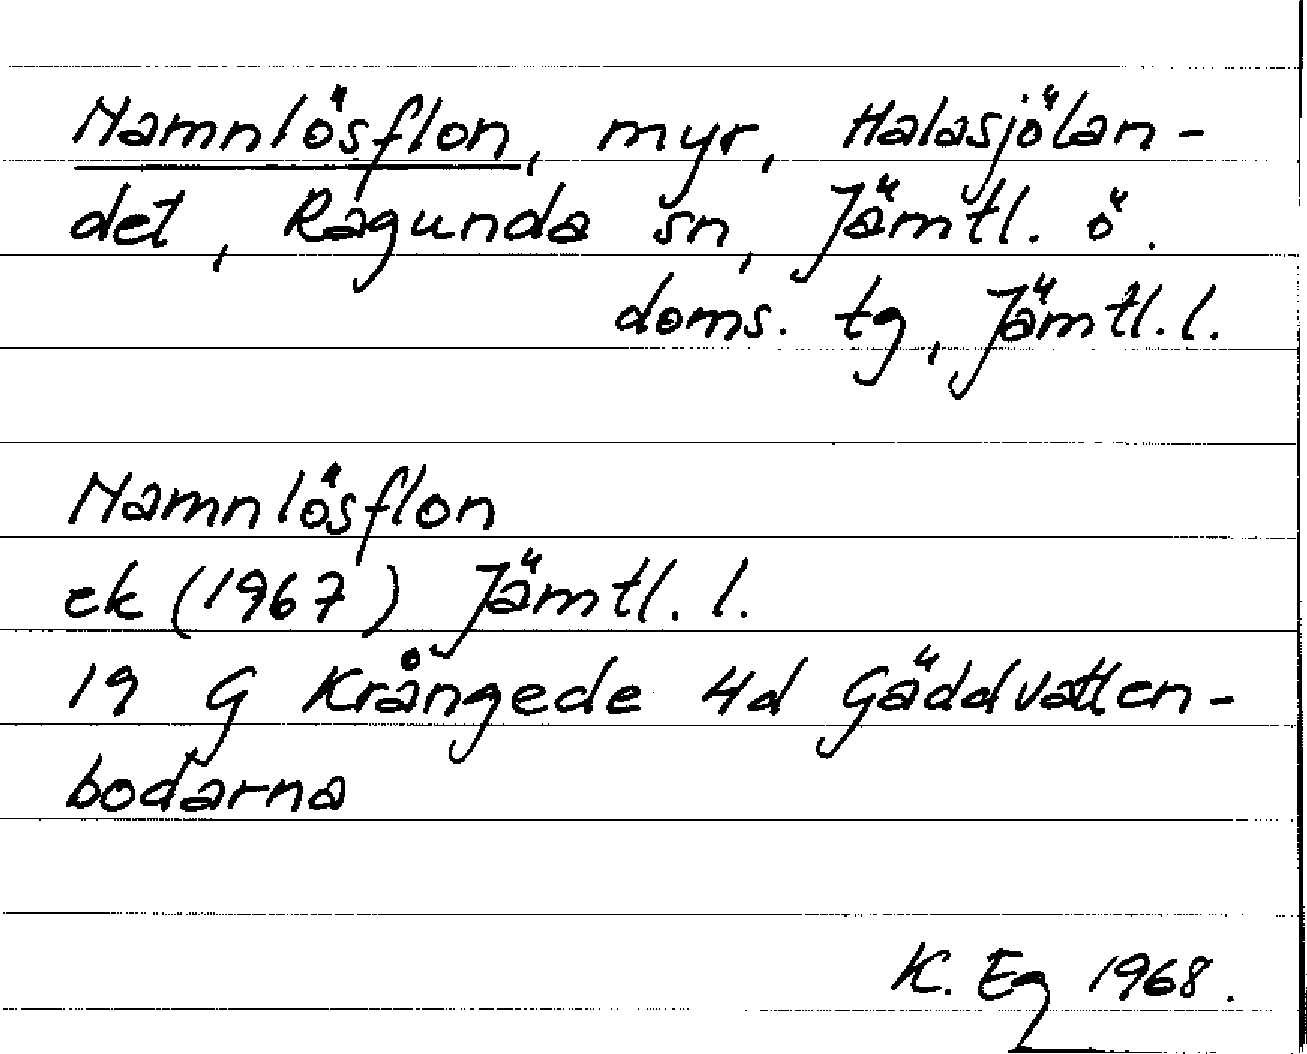 Namnlösflon, myr, Halasjölan-
det, Ragunda sn, Jämtl. ö.
doms. tg, Jämtl. l.
Namnlösflon
ek (1967) Jämtl. l.
19 G Krångede 4d Gäddvatten-
bodarna
K. Eg 1968.